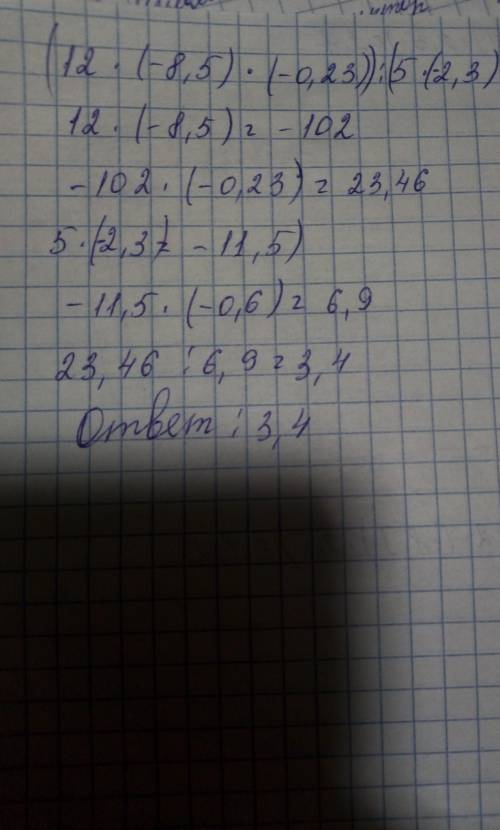 (12 · (-8,5) · (-0,23)):(5 · (-2,3)
12 · (-8,5) = -102
-102 · (-0,23) = 23,46
5 · (-2,3) = -11,5)
-11,5 · (-0,6) = 6,9
23,46 : 6,9 = 3,4
Ответ : 3,4